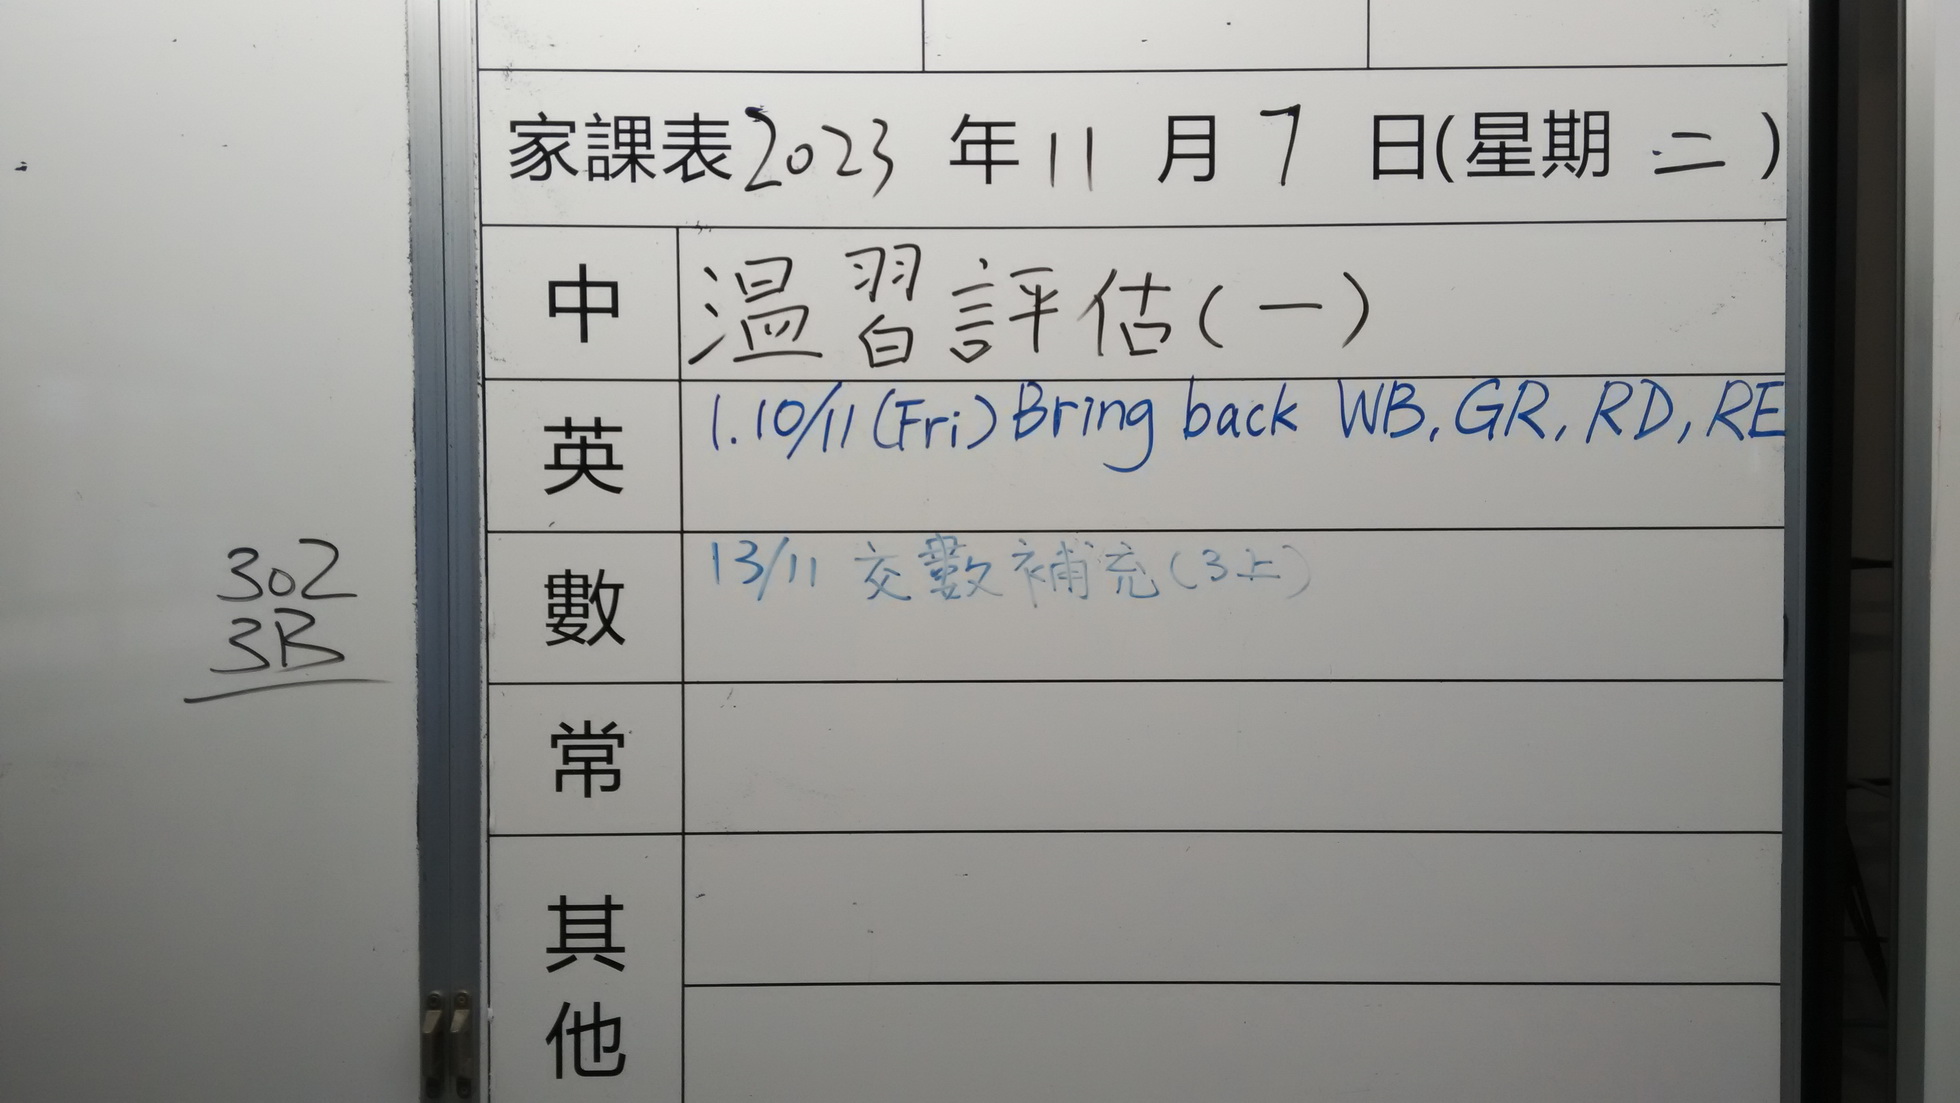 家課表2023 年 11 月 7 日(星期 二 )
中 温習評估(一)
英 1. 10/11 (Fri) Bring back WB, GR, RD, RE
數 13/11 交數補充(3上)
常
其他
302
3B